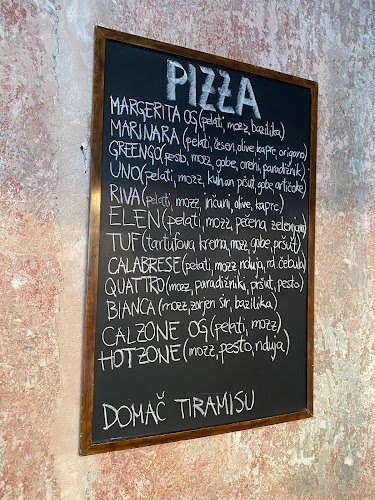 PIZZA
MARGERITA OG (pelati, mozz, bazilika)
MARINARA (pelati, česen, olive, kapre, origano)
GREENGO (pesto, mozz, gobe, orehi, paradižnik)
UNO (pelati, mozz, kuhan pršut, gobe, artičoke)
RIVA (pelati, mozz, inčuni, olive, kapre)
ELEN (pelati, mozz, pečena, zelenjava)
TUF (tartufova krema, mozz, gobe, pršut)
CALABRESE (pelati, mozz, nduja, rd. čebula)
QUATTRO (mozz, paradižniki, pršut, pesto)
BIANCA (mozz, zorjen sir, bazilika)
CALZONE OG (pelati, mozz)
HOTZONE (mozz, pesto, nduja)
DOMAČ TIRAMISU